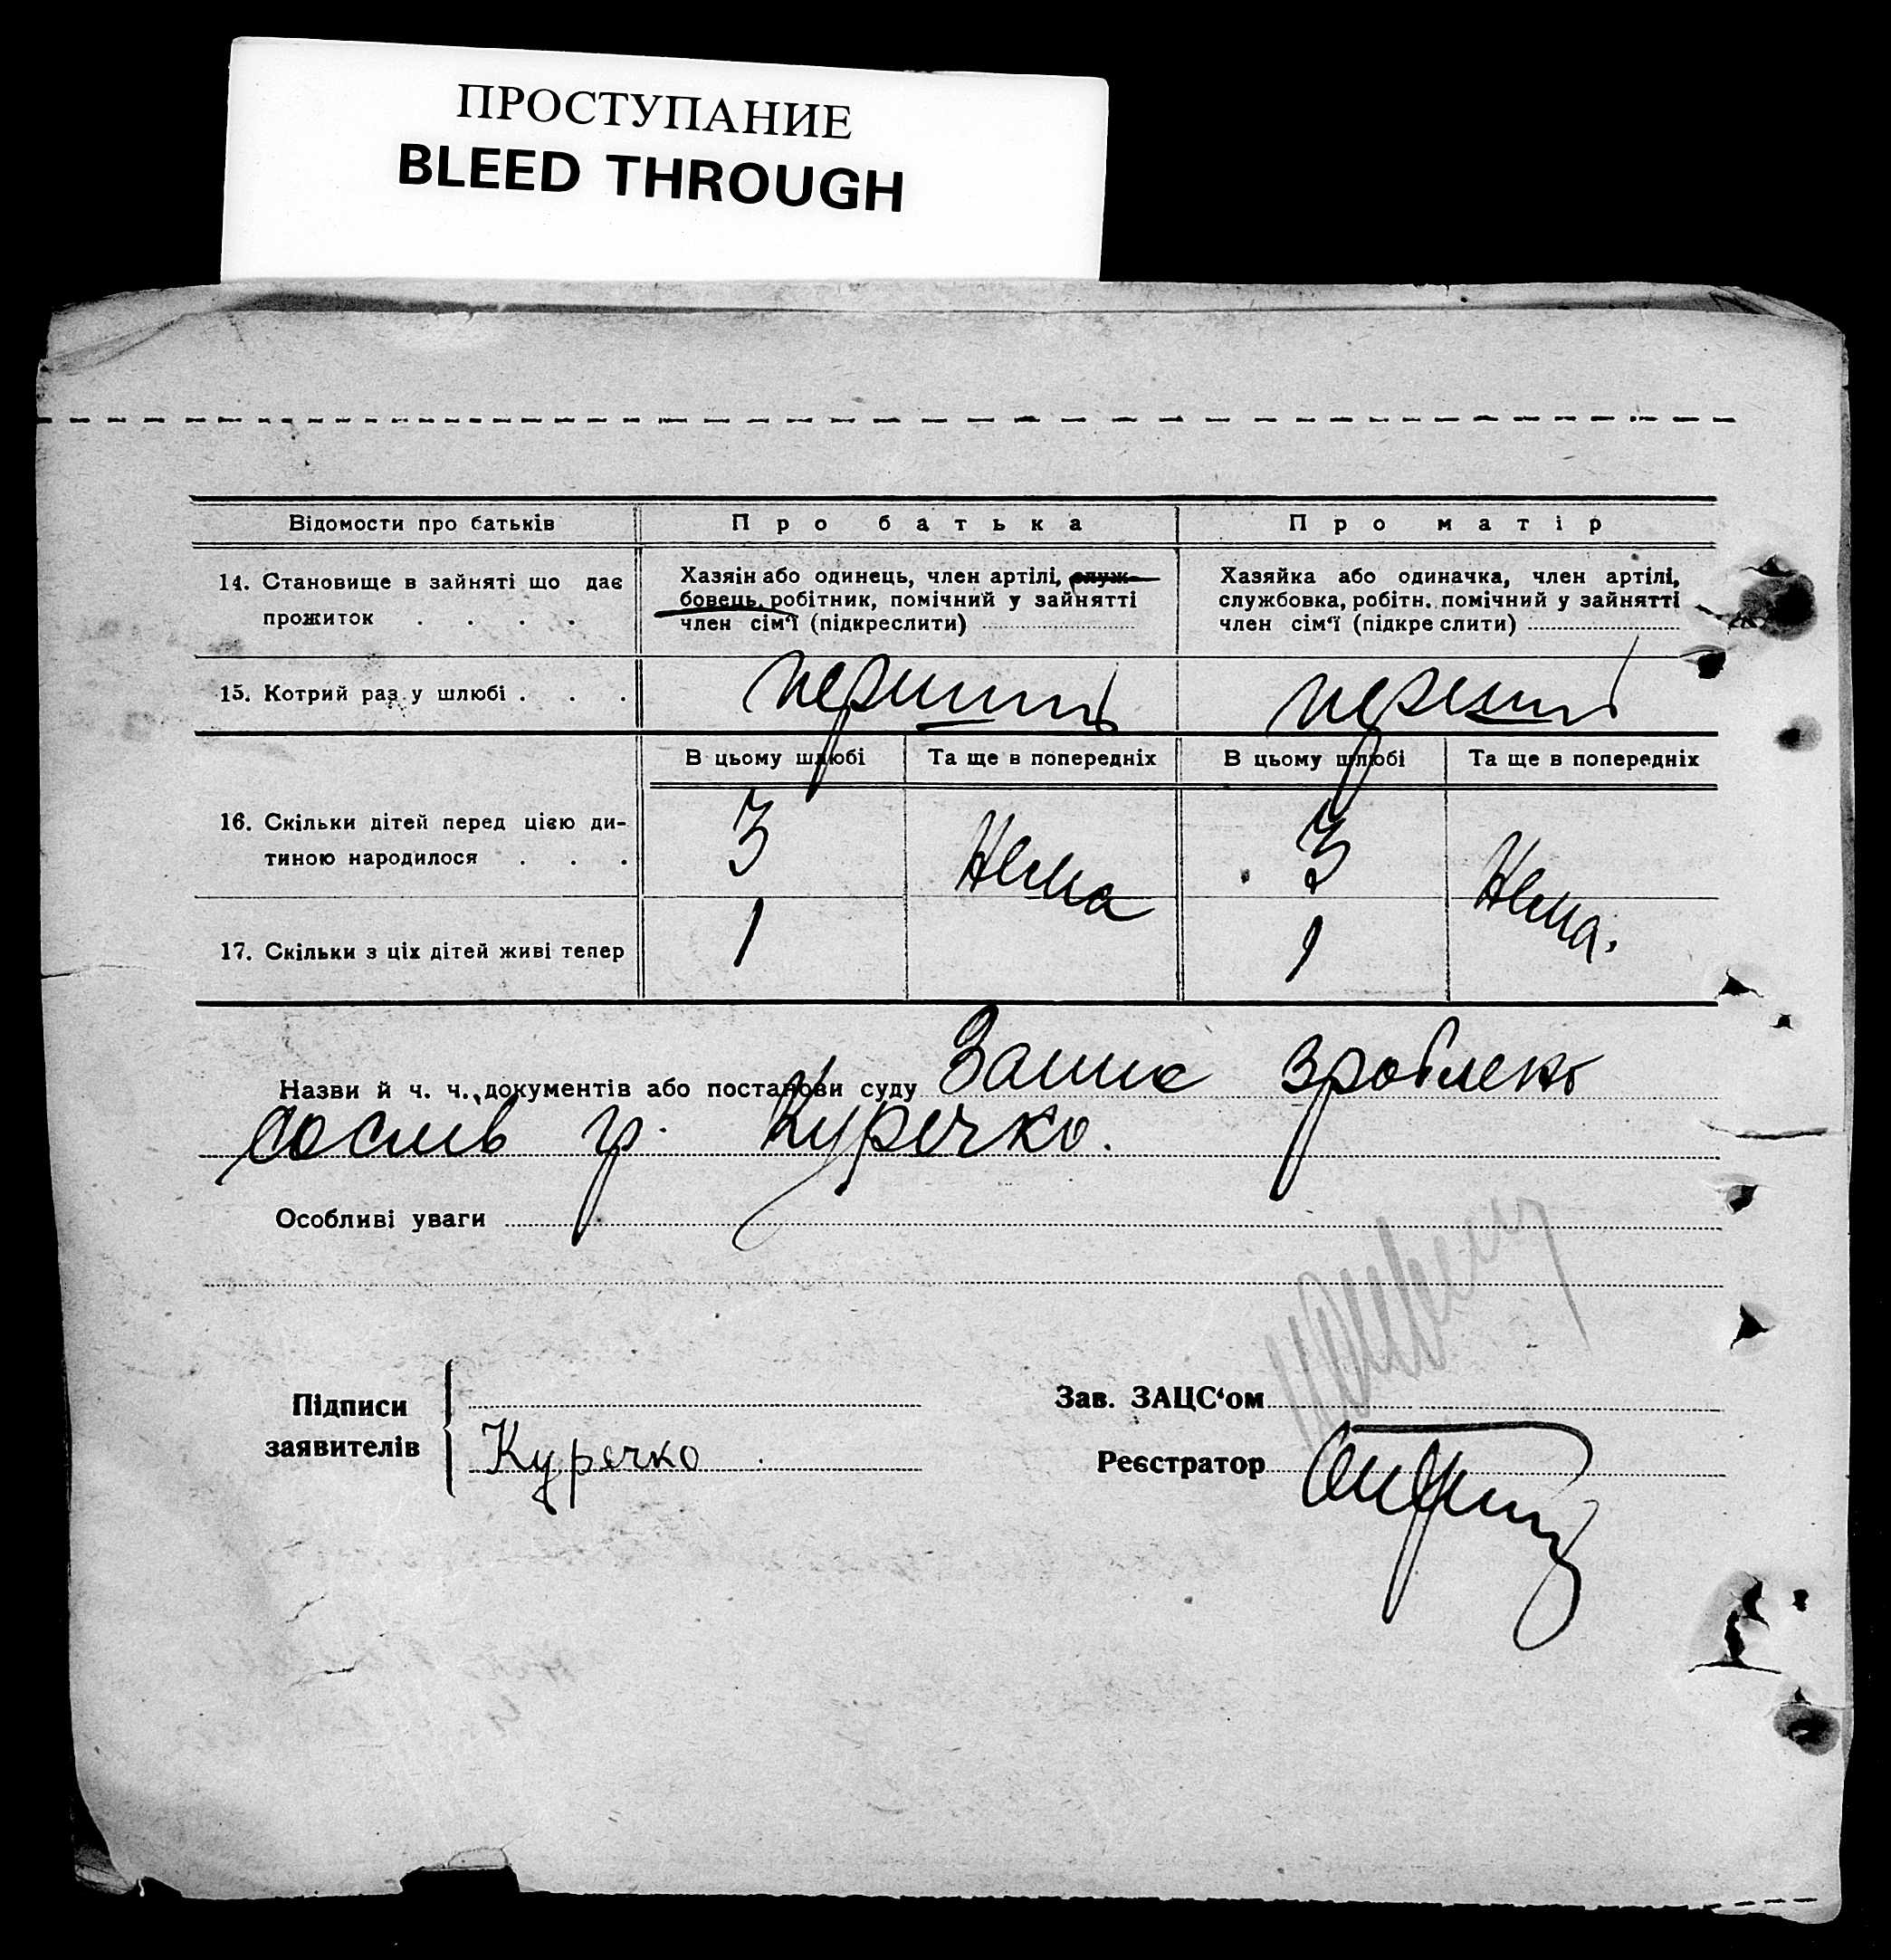 ПРОСТУПАНИЕ
BLEED THROUGH
Відомости про батьків Про батька Про матір
14. Становище в зайняті що дає прожиток . . . .
Хазяін або одинець, член артілі, служ-
бовець, робітник, помічний у зайнятті
член сім'ї (підкреслити)
Хазяйка або одиначка, член артілі,
службовка, робітн. помічний у зайнятті
член сім'ї (підкреслити)
15. Котрий раз у шлюбі . . . перший перший
В цьому шлюбі Та ще в попередніх В цьому шлюбі Та ще в попередніх
16. Скільки дітей перед цією ди-
тиною народилося . . . 3 Нема 3 Нема.
17. Скільки з ціх дітей живі тепер 1 1
Назви й ч. ч. документів або постанови суду Запис зроблено
со слів гр. Куречко.
Особливі уваги
Підписи
заявителів
Куречко
Зав. ЗАЦС'ом
Реєстратор